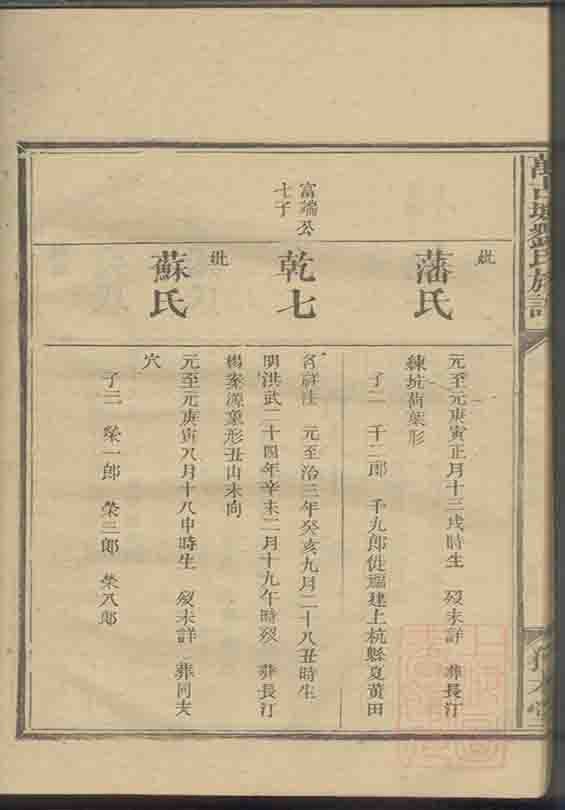 妣
藩氏
元至元庚寅正月十三戌時生 歿未詳 葬長汀
練坑荷葉形
子二 千二郎 千九郎徙福建上杭縣夏黃田
富端公
七子
乾七
名 元至治三年癸亥九月二十八丑時生
明洪武二十四年辛未二月十九午時歿 葬長汀
楊家源象形丑山未向
妣
蘇氏
元至元庚寅八月十八申時生 歿未詳 葬同夫
穴
子三 榮一郎 榮三郎 榮八郎